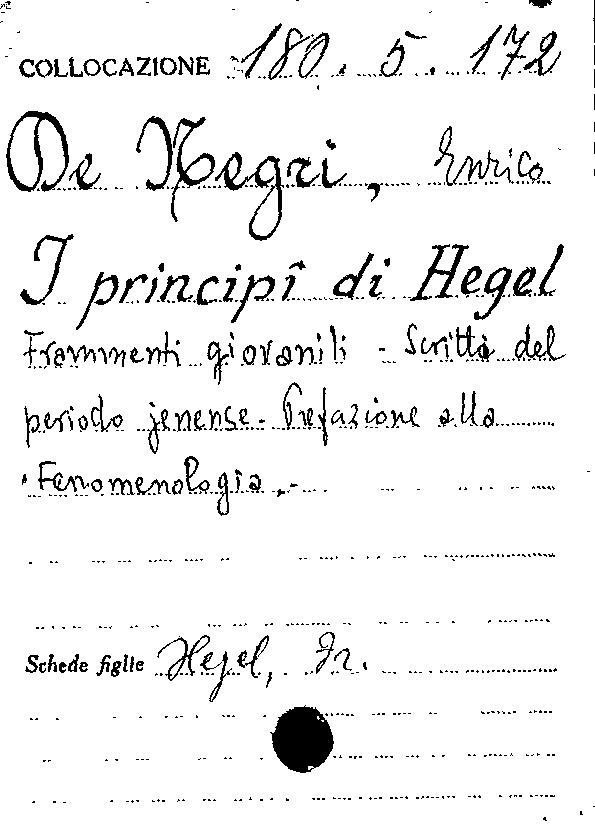 COLLOCAZIONE 180. 5. 172
De Negri, Enrico
I principî di Hegel
Frammenti giovanili - Scritti del
periodo jenense - Prefazione alla
"Fenomenologia".-
Schede figlie Hegel, Fr.